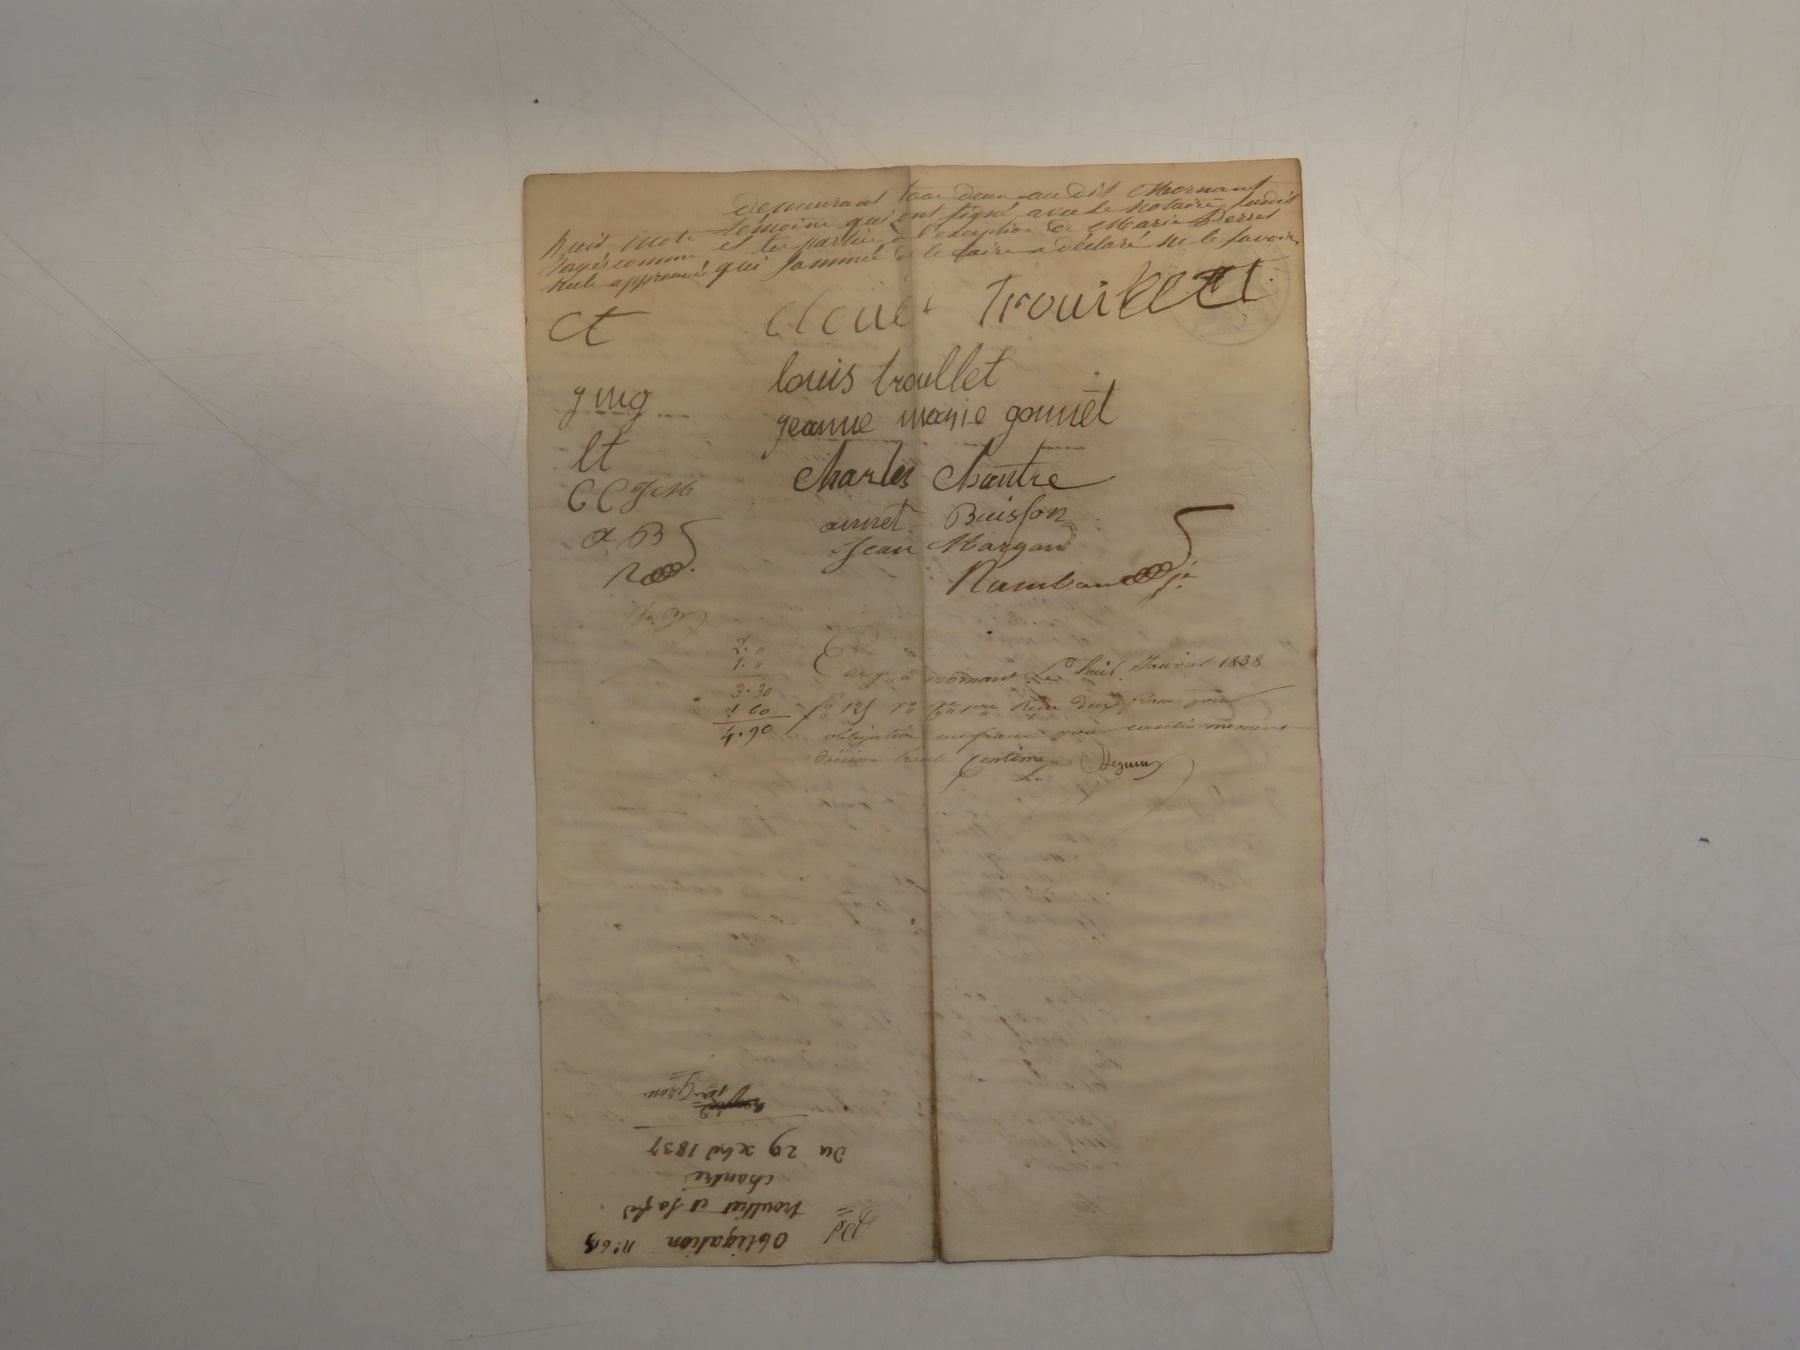 demeurant tous deux audit Mornant
témoins qui ont signé avec le notaire susdit
et les parties à l'exception de Marie Perret
qui sommée de le faire a déclaré ne le savoir,
huit mots
rayés comme
nuls approuvés
Trouillet
Ct
louis troullet
jeanne marie gonnet
jmg
lt
Charles Chantre
CC JM
annet Buisson
a B
Jean Margand
2. "
1. "
3.30
1 60
4.90
à mornant le huit Janvier 1838
fo 125 ro reçu deux francs pour
obligation un franc pour cautionnement
décime trente centimes
Obligation n° 61
trouillet et sa fe
chantre
du 29 xbre 1837